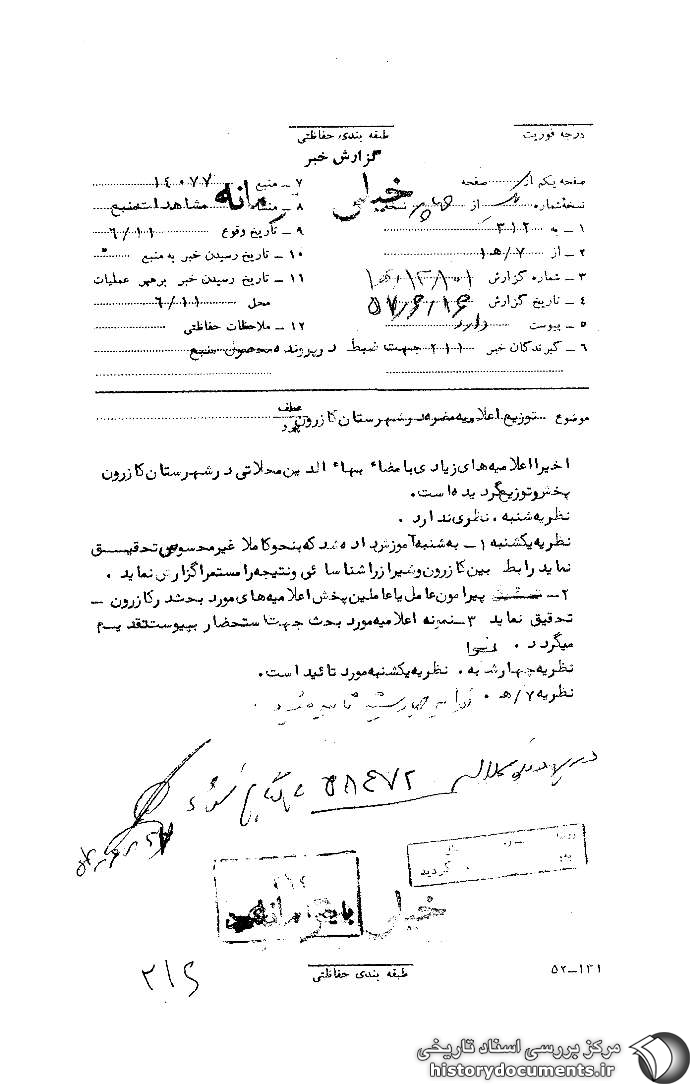 درجه فوریت
طبقه بندی حفاظتی
گزارش خبر
صفحه یکم از صفحه
نسخه شماره از نسخه
۱ـ به ۳۱۲
۲ـ از ۷/ه‍ ۱
۳ـ شماره گزارش
۴ـ تاریخ گزارش ۵۷/۶/۱۶
۵ـ پیوست دارد
۶ـ گیرندگان خبر ۲۱۱ جهت ضبط در پرونده محصول منبع
۷ـ منبع ۱۴۰۷۷
۸ـ منشاء مشاهدات منبع
۹ـ تاریخ وقوع ۶/۱۱
۱۰ـ تاریخ رسیدن خبر به منبع
۱۱ـ تاریخ رسیدن خبر برهبر عملیات
محل ۶/۱۱
۱۲ـ ملاحظات حفاظتی
خیلی محرمانه
موضوع توزیع اعلامیه مضره در شهرستان کازرون
عطف
پیرو
اخیرا اعلامیه های زیادی با مضاء بهاء الدین محلاتی در شهرستان کازرون
پخش و توزیع گردیده است.
نظریه شنبه. نظری ندارد.
نظریه یکشنبه ۱ـ به شنبه آموزش داده شد که بنحو کاملا غیر محسوس تحقیق
نماید رابط بین کازرون و شیراز را شناسائی و نتیجه را مستمرا گزارش نماید.
۲ـ پیرامون عامل یا عاملین پخش اعلامیه های مورد بحث در کازرون ـ
تحقیق نماید ۳ـ نمونه اعلامیه مورد بحث جهت استحضار بپیوست تقدیم
میگردد.
نظریه چهارشنبه. نظریه یکشنبه مورد تائید است.
نظریه ۷/ه‍. نظریه چهارشنبه تائید میشود.
در پرونده کلاسه ۵۸۴۷۲ بایگانی شود
گردید
۳۱۲
خیلی محرمانه
بایگانی
۳۱۶
طبقه بندی حفاظتی
۵۲ـ۱۳۱
مرکز بررسی اسناد تاریخی
historydocuments.ir